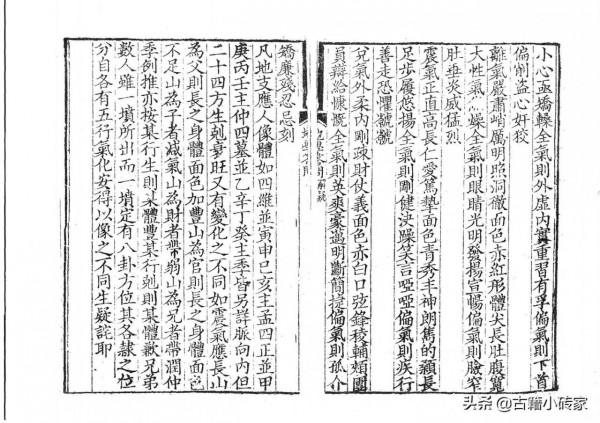 小心亟矯全氣則外虛内實重習有孚偏氣則下首
偏削盜心奸狡
離氣嚴肅峭厲明照洞徹面色亦紅形體尖長肚腹寬
大性氣燥全氣則眼睛光明發揚宣暢偏氣則臉窄
肚垂炎威猛烈
震氣正直高長仁愛篤摯面色青秀丰神朗雋的顙長
足步履悠揚全氣則剛健決躁笑言啞啞偏氣則疾行
善走恐懼虩虩
兌氣外柔内剛疎財仗義面色亦白口弦鋒稜輔頰圓
員辯給慷慨全氣則英爽豪邁明斷簡捷偏氣則孤介
矯廉殘忍忌刻
凡地支應人像體如四維並寅申巳亥主孟四正並甲
庚丙壬主仲四墓並乙辛丁癸主季皆另詳脈向内但
二十四方生剋衰旺又有變化之不同如震氣應長山
為父則長之身體面色加豐山為官則長之身體面色
不足山為子者減氣山為財者帶翁山為兄者帶潤仲
季例推亦按某行生則某體豐某行剋則某體歉兄弟
數人雖一墳所出而一墳定有八卦方位其各隸之位
分自各有五行氣化安得以像之不同生疑詫耶
头条@古籍小砖家